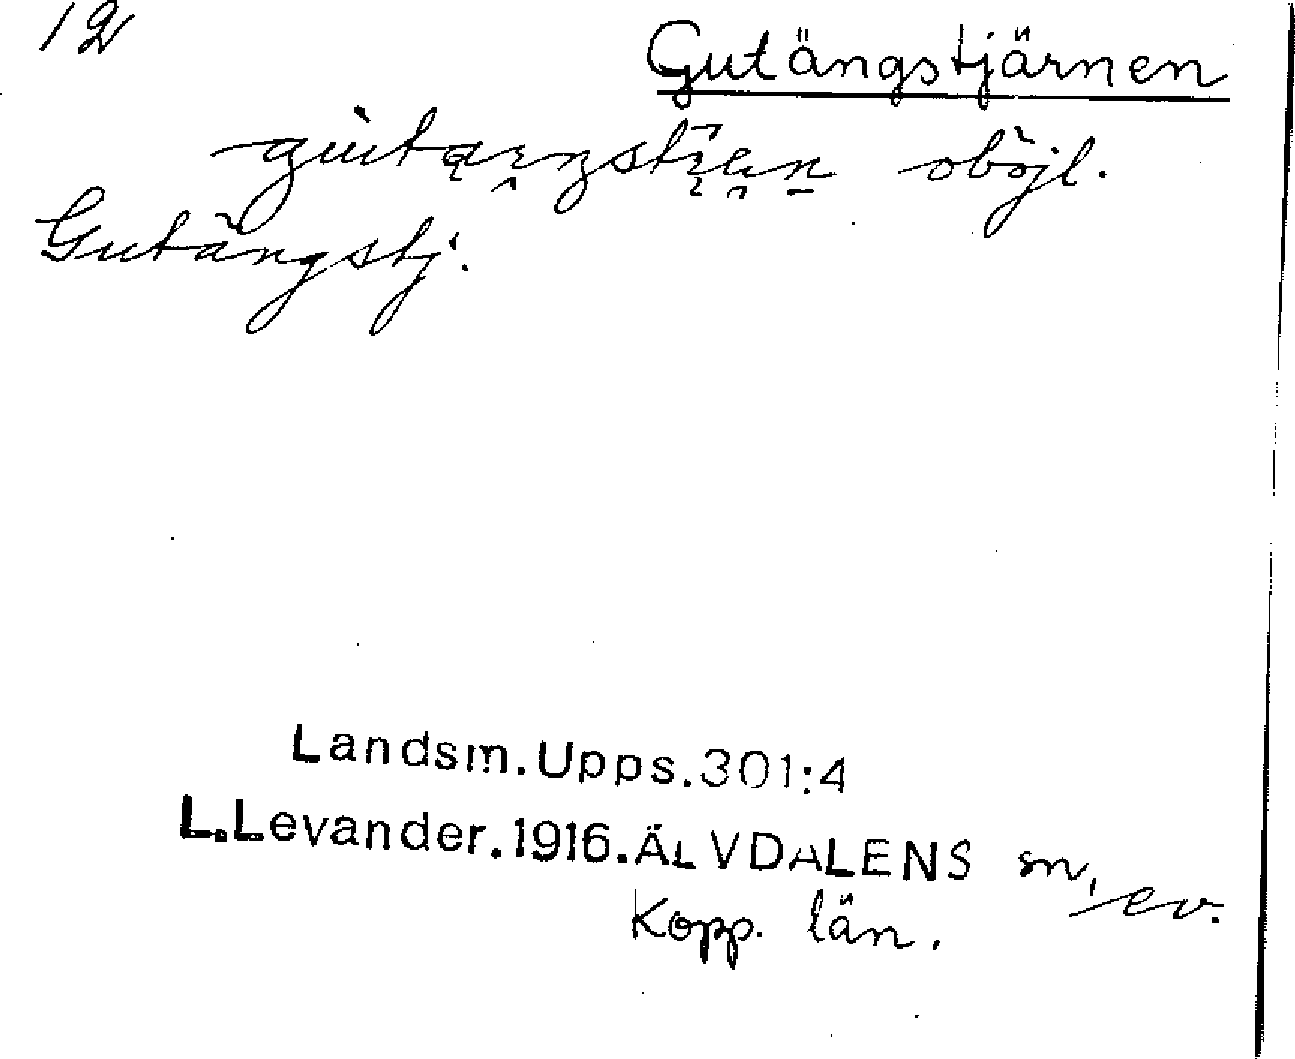 12
Gutängstjärnen
oböjl.
Gutängstj.
Landsm.Upps.301:4
L.Levander.1916.ÄLVDALENS sn, ev.
Kopp. län.